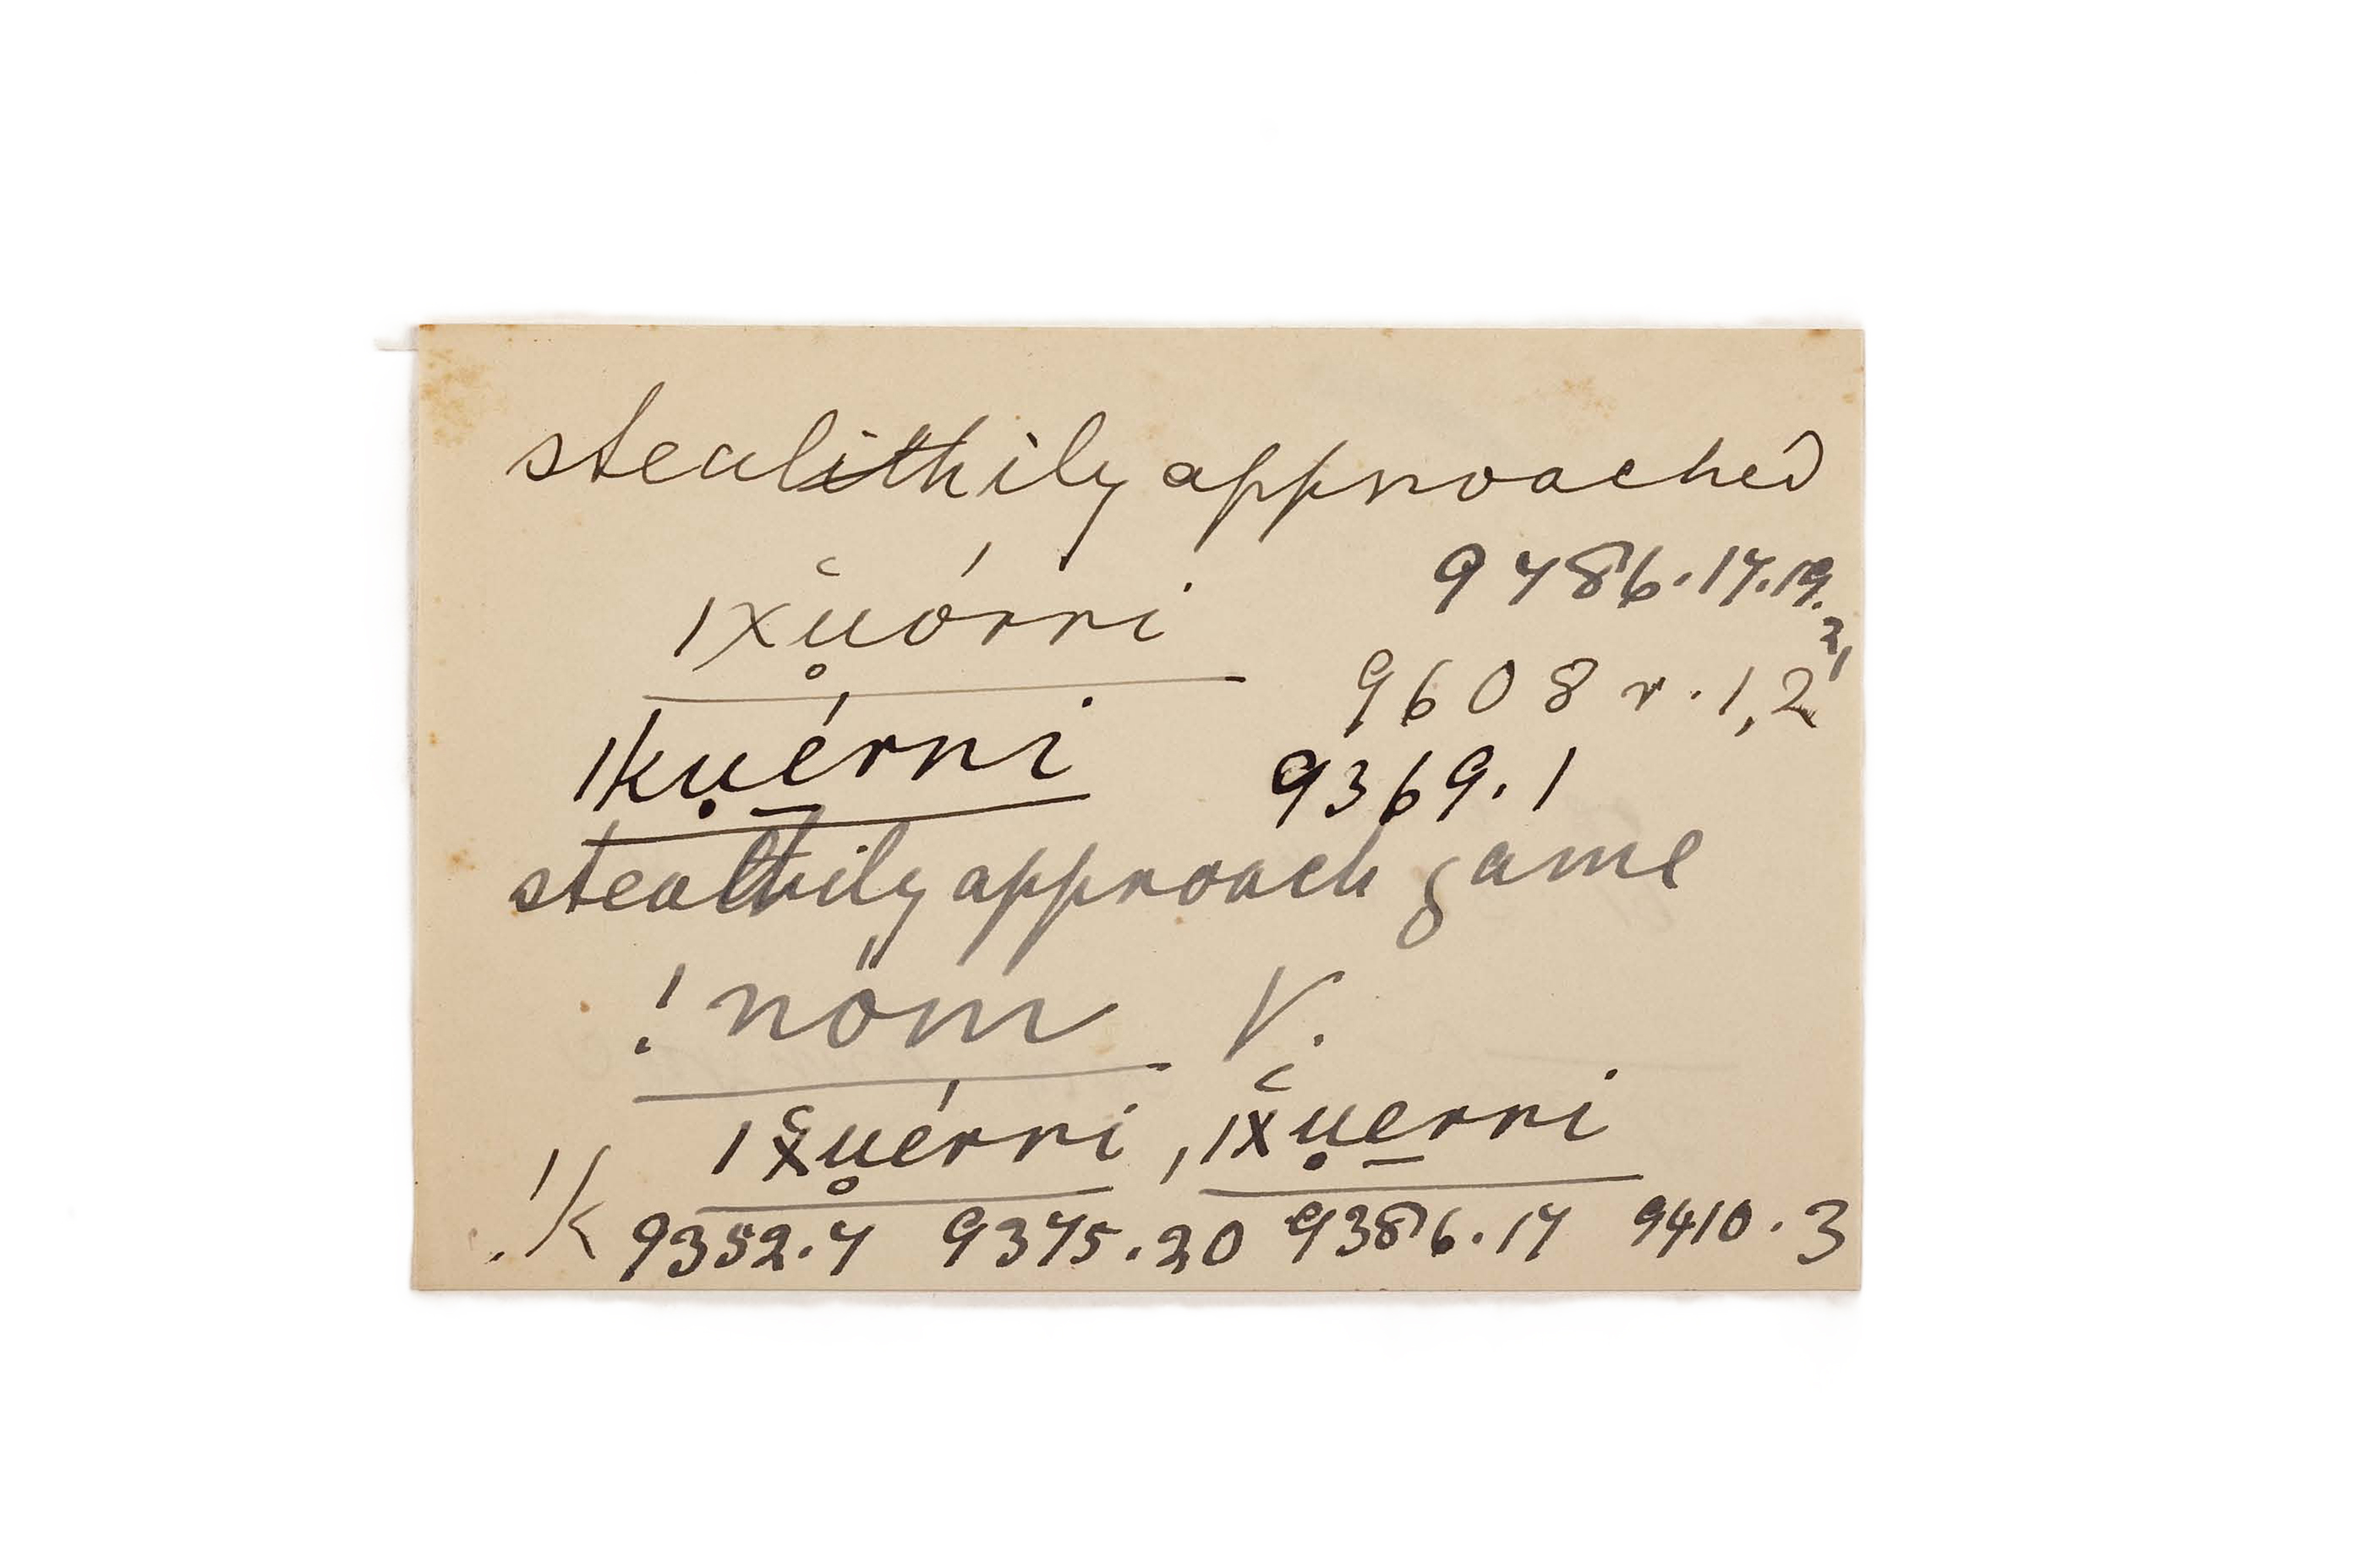 stealithily approached
ǀx̆u̥órri 9786.17.19.
21
9608 r.1,2
ǀkụé̱rni 9369.1
stealthily approach game
!nöm V.
ǀx̆u̥érri, ǀx̆ụe̱rri
!k 9352.7 9375.20 9386.17 9410.3